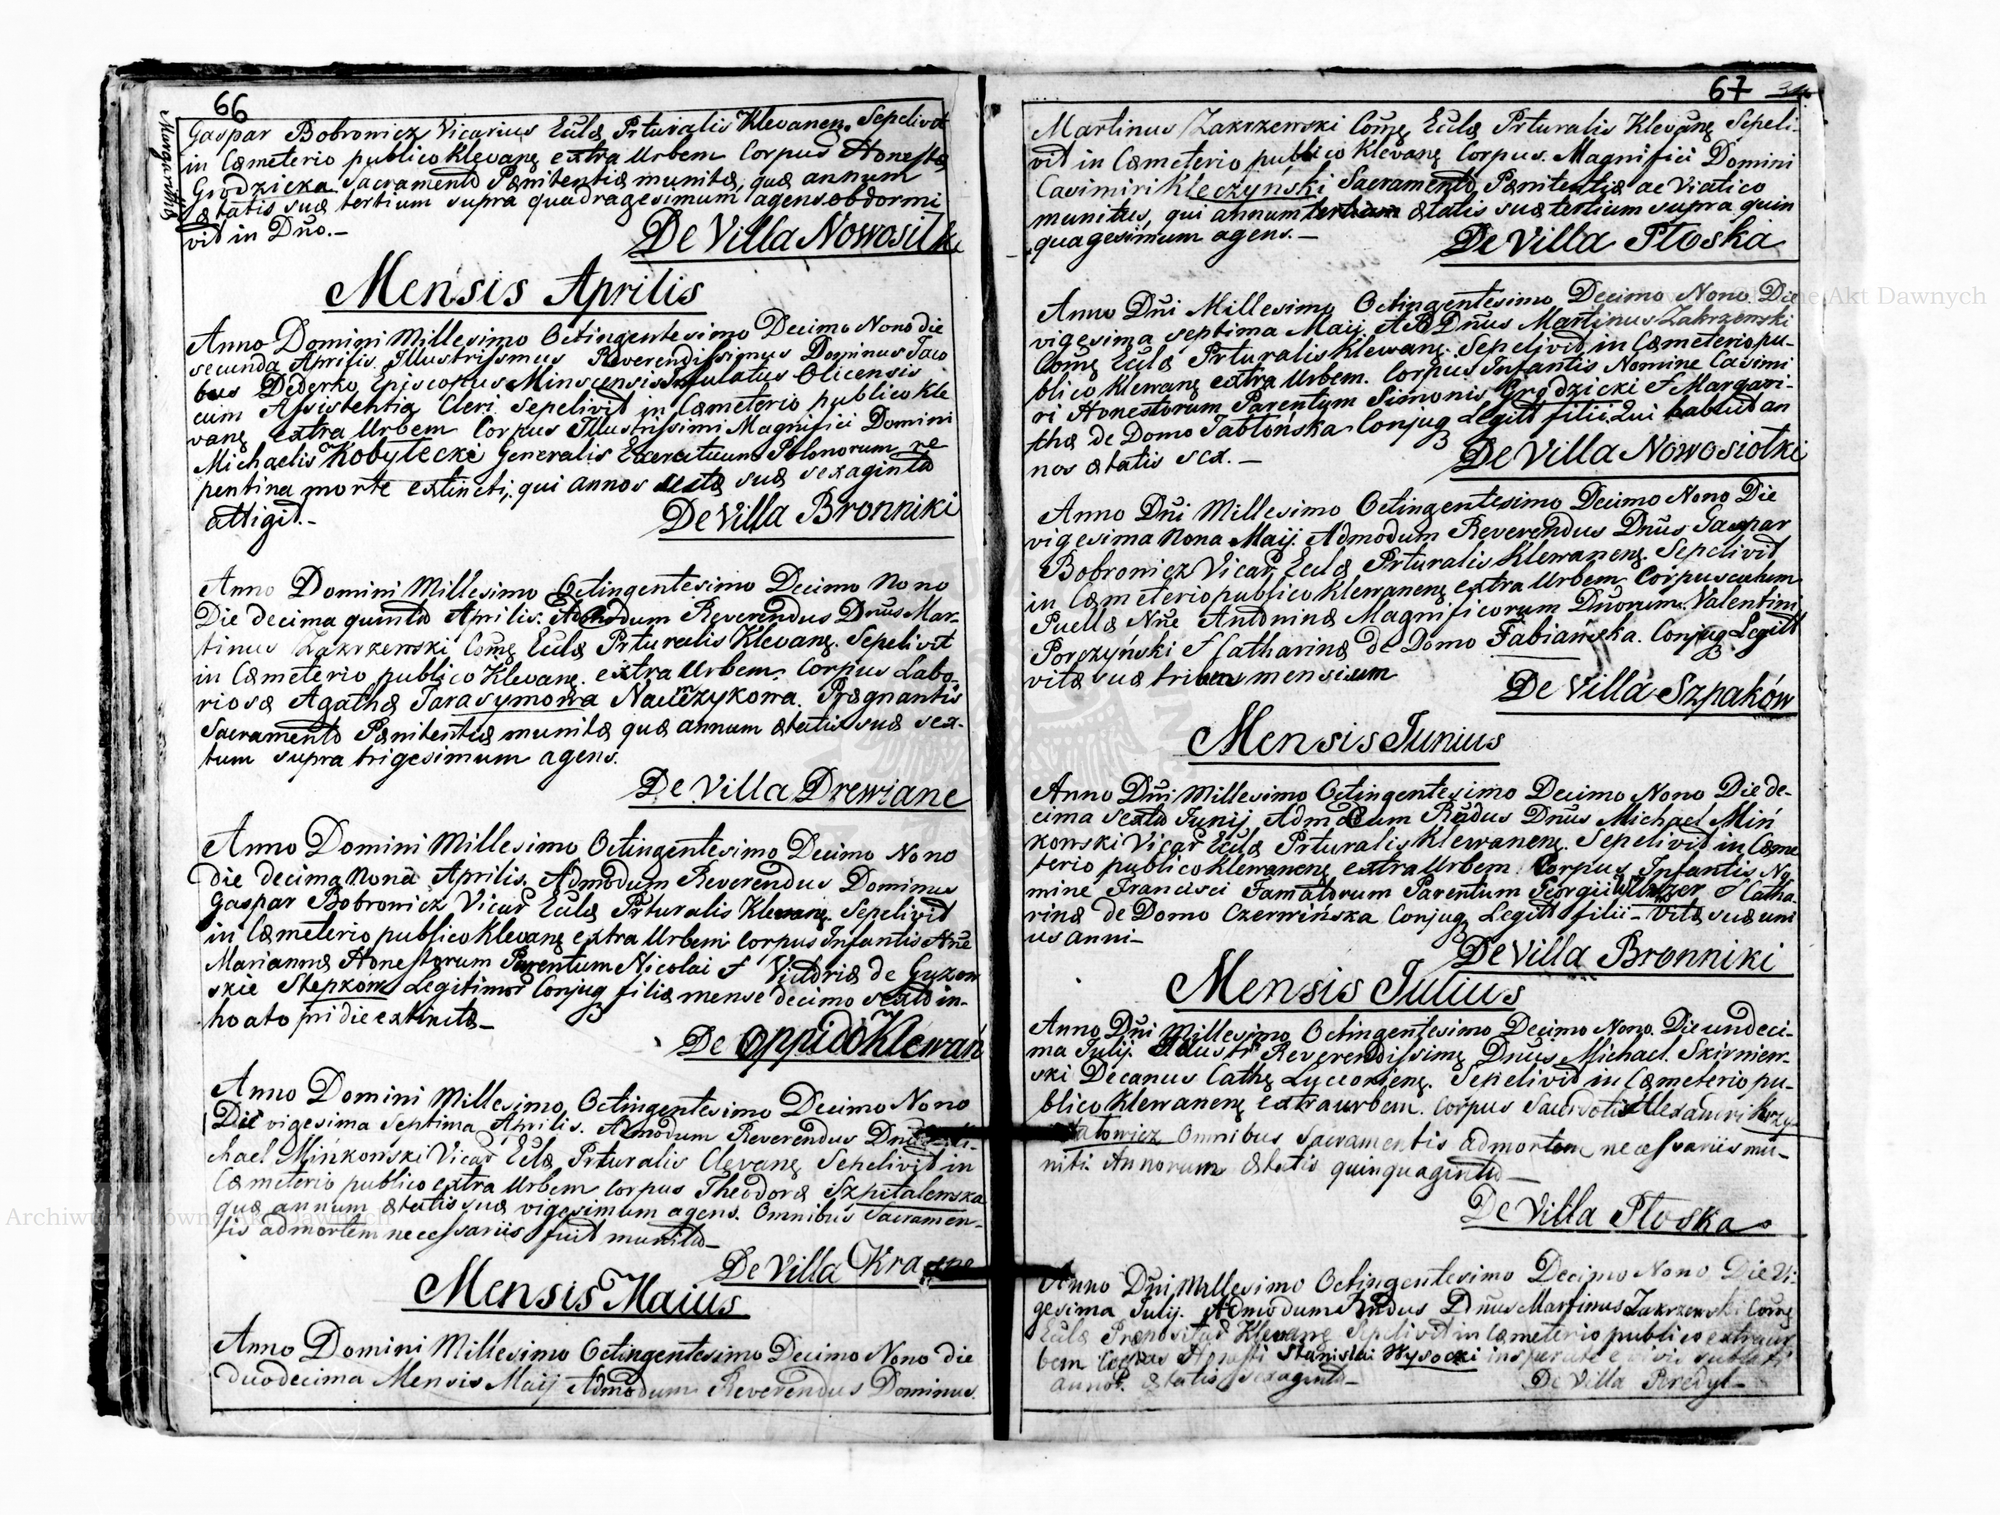 66
Margarithæ
Gaspar Bobrowicz Vicarius Eculæ Prturalis Klevanen. Sepelivit
in Cæmeterio publico Klevanę extra Urbem Corpus Honestæ
Grodzicka Sacramento Pænitentiæ munitæ, quæ annum
ætatis suæ tertium supra quadragesimum agens obdormi
vit in Dno.-
De Villa Nowosiłk
Mensis Aprilis
Anno Domini Millesimo Octingentesimo Decimo Nono die
secunda Aprilis Illustrissmus Reverendissimus Dominus Jaco
bus Dederko Episcopus Minscensis Infulatus Olicensis
cum Assistentia Cleri Sepelivit in Cæmeterio publico Kle
vanę extra Urbem Corpus Illustrissimi Magnifici Domini
Michaelis Kobyłecki Generalis Exercituum Polonorum re
pentina morte extincti, qui annos ætatæ suæ sexaginta
attigit.-
De Villa Bronniki
Anno Domini Millesimo Octingentesimo Decimo Nono
Die decima quinta Aprilis. Admodum Reverendus Dnus Mar-
tinus Zakrzewski Comę Eculæ Prturalis Klevanę. Sepelivit
in Cæmeterio publico Klevanę. extra Urbem. Corpus Labo-
riosæ Agathæ Tarasymowa Naumczykowa. Prægnantis
Sacramento Pænitentiæ munitæ quæ annum ætatis suæ sex-
tum supra trigesimum agens.
De Villa Drewiane
Anno Domini Millesimo Octingentesimo Decimo Nono
die decima nona Aprilis, Admodum Reverendus Dominus
Gaspar Bobrowicz Vicar Eculæ Prturalis Klewanę. Sepelivit
in Cæmeterio publico Klevanę extra Urbem Corpus Infantis Nne
Mariannæ Honestorum Parentum Nicolai & Victoriæ de Guzow
skie Stepkow Legitimor Conjug filiæ mense decimo sexto in-
hoato pridie extinctæ-
De oppido Klewań
Anno Domini Millesimo Octingentesimo Decimo Nono
Die vigesima Septima Aprilis. Admodum Reverendus Dnus Mi-
chael Mińkowski Vicar Eculæ Prturalis Clevanę Sepelivit in
Cæmeterio publico extra Urbem Corpus Theodoræ Szpitalewska
quæ annum ætatis suæ vigesimum agens. Omnibus Sacramen-
tis ad mortem necessariis fuit munita-
De Villa Krasne
Mensis Maius
Anno Domini Millesimo Octingentesimo Decimo Nono die
duodecima Mensis Maij Admodum Reverendus Dominus
67 34
Martinus Zakrzewski Comę Eculæ Prturalis Klevanę Sepeli-
vit in Cæmeterio publico Klevanę Corpus. Magnifici Domini
Casimiri Kleczyński Sacramento Pænitentiæ ac Viatico
munitus, qui annum tertium ætatis suæ tertium supra quin
quagesimum agens.-
De Villa Płoska
Anno Dni Millesimo Octingentesimo Decimo Nono Die
vigesima septima Maij. AR Dnus Martinus Zakrzewski
Comę Eculæ Prturalis Klewanę. Sepelivit in Cæmeterio pu-
blico Klewanę extra Urbem. Corpus Infantis Nomine Casimi
ri Honestorum Parentum Simonis Grodzicki & Margari-
thæ de Domo Jabłońska Conjug Legitt filii. Qui habuit an
nos ætatis sex.-
De Villa Nowosiołki
Anno Dni Millesimo Octingentesimo Decimo Nono Die
vigesima nona Maij. Admodum Reverendus Dnus Gaspar
Bobrowicz Vicar. Eculæ Prturalis Klewanenę. Sepelivit
in Cæmeterio publico Klewanenę extra Urbem Corpusculum
Puellæ Nne Antoninæ Magnificorum Dnorum. Valentini
Porczyński & Catharinæ de Domo Fabiańska. Conjug Legitt
vitæ suæ trium mensium
De Villa Szpaków
Mensis Junius
Anno Dni Millesimo Octingentesimo Decimo Nono Die de-
cima sexta Junij Admodum Rndus Dnus Michael Miń
kowski Vicar Eculæ Prturalis Klewanenę. Sepelivit in Cæme
terio publico Klewanenę extra Urbem. Corpus Infantis No
mine Francisci Famatorum Parentum Georgii & Catha
rinæ de Domo Czerwińska Conjug Legitt filii- Vitæ suæ uni
us anni-
De Villa Bronniki
Mensis Julius
Anno Dni Millesimo Octingentesimo Decimo Nono. Die undeci-
ma Julij. Illustr Reverendissimę Dnus Michael. Skirniew-
ski Decanus Cathę Lyceoriensę. Sepelivit in Cæmeterio pu-
blico Klewanenę extra urbem. Corpus Sacerdotis Alexandri Krzy-
tałowicz Omnibus Sacramentis ad mortem necessariis mu-
niti. Annorum ætatis quinquaginta-
De Villa Płoska
Anno Dni Millesimo Octingentesimo Decimo Nono. Die Vi-
gesima Julij. Admodum Rndus Dnus Martinus Zakrzewski Comę
Eculæ Præposituræ Klevanę Sepelivit in Cæmeterio publico extra ur
bem Corpus Honesti Stanislai Wysocki insperate e vivis sublati
annor. ætatis sexaginta-
De Villa Peredył-
Archiwum Główne Akt Dawnych
Archiwum Główne Akt Dawnych